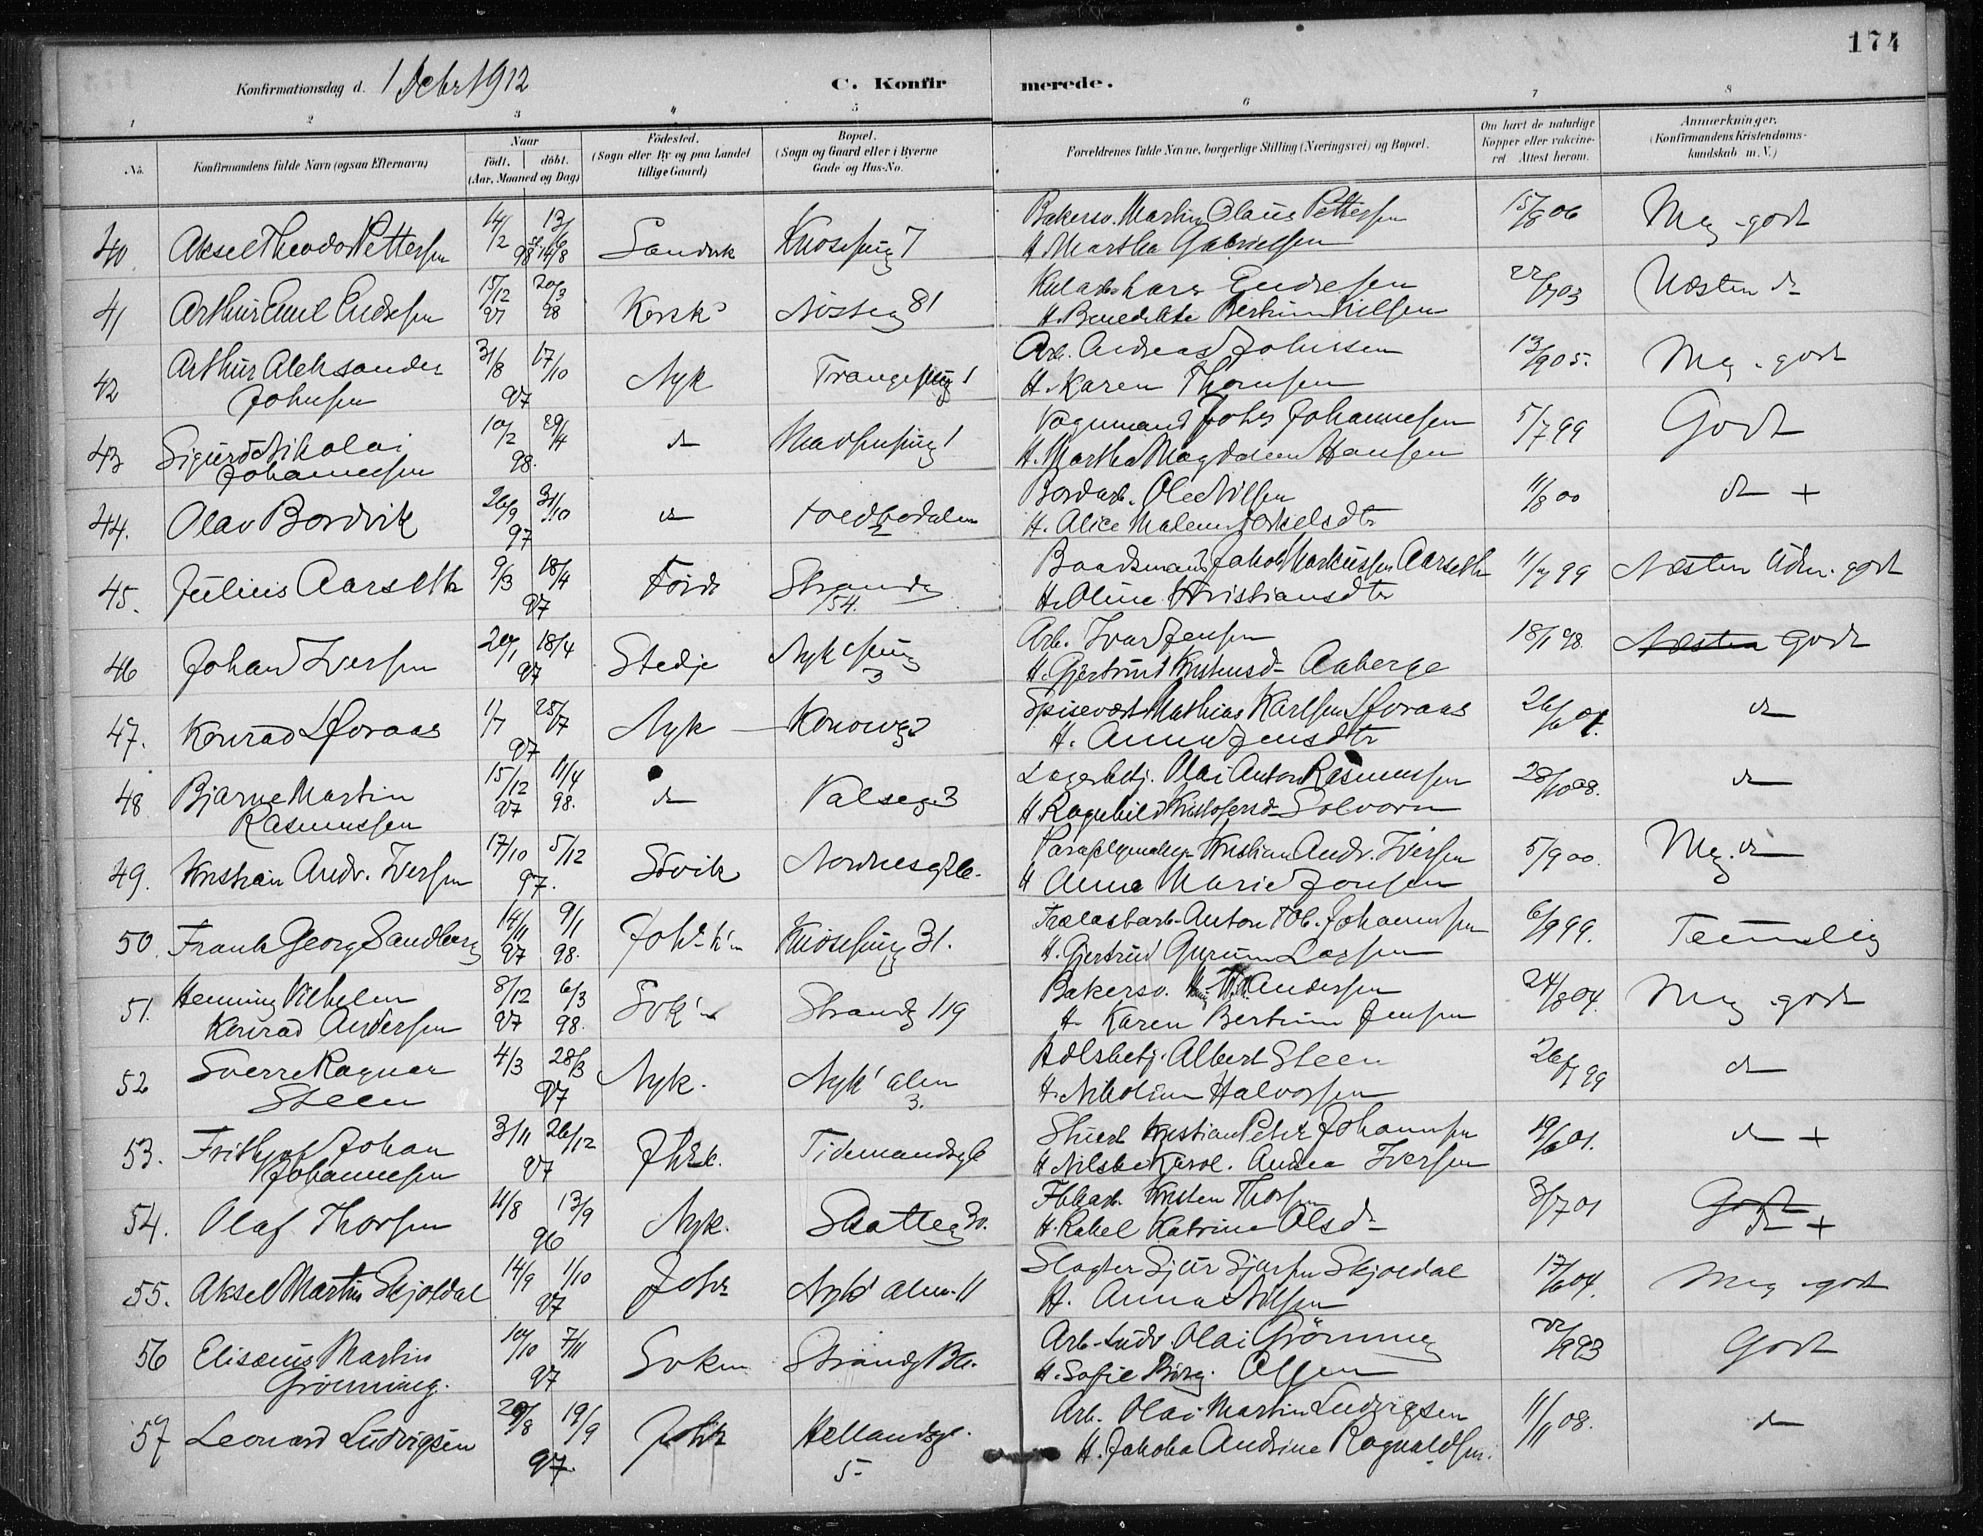 174
Konfirmationsdag d. 1 Debr 1912
C. Konfirmerede.
1 2 3 4 5 6 7 8
No. Konfirmandens fulde Navn (ogsaa Efternavn) Naar født. døbt. (Aar, Maaned og Dag) Fødested. (Sogn eller By og paa Landet tillige Gaard) Bopæl. (Sogn og Gaard eller i Byerne Gade og Hus-No. Forældrenes fulde Navne, borgerlige Stilling (Næringsvei) og Bopæl. Om havt de naturlige Kopper eller vakcineret. Attest herom. Anmærkninger. (Konfirmandens Kristendomskundskab m. V.)
40. Aksel Theodor Pettersen 14/2 98 Sandvk Knøsesmg 7 Bakersv. Martin Olaus Pettersen 15/8 06 Meg. godt
H. Martha Gabrielsen
41 Arthur Emil Endresen 15/12 97 20/3 98 Korsk Nøsteg 81 Lars Endresen 03 Næsten do
H. Benedikte Bertine Nilsen
42 Arthur Aleksander Johnsen 31/8 17/10 97 Nyk Trangesmg 1 Arb. Andreas Johnsen 13/9 05. Meg. godt
H. Karen Thomsen
43 Sigurd Nikolai Johannesen 10/2 29/4 98. do Vognmand Johs Johannesen 5/7 99 Godt
H. Martha Magdalene Hansen
44. Olav Bordvik 26/9 31/10 97 do Bordarb. Ole Nilsen 11/8 00 do +
H. Alice Malene
45. Julius Aarseth 9/3 18/4 97 Førde Strandg 154. Baadsmand Jakob Markussen Aarseth 99 Næsten Udm. godt
H. Oline Kristiansdtr
46 Johan Iversen 20/1 18/4 97 Stedje Nyksmg 3 Arb. Ivar Jensen 18/1 98. Næsten Godt
H. Gjertrud Kristensd. Aaberge
47. Konrad Hovaas 1/7 25/7 97 Nyk Konowg 2 Spisevært Mathias Karlsen Hovaas 26/6 01. do
H. Anna Jensdtr
48 Bjarne Martin Rasmussen 15/12 97 11/4 98. do Valseg. 3 Lagerbetj. Olai Anton Rasmussen 28/10 08. do
H. Ragnhild Kristofersd. Solvorn
49. Kristian Andr. Iversen 17/10 5/12 97. Søvik Nordnesg Kristian Andr. Iversen 5/9 00. Meg. do
H Anna Marie Jonsen
50. Frank Georg Sandberg 14/11 97 9/1 98. Joh.k'n Knøsesmg 31. Trælastarb. Anton Tob. Johannesen 6/9 99. Temmelig
H. Gjertrud Gurine Larsen
51. Henning Vilhelm Konrad Andersen 8/12 97 6/3 98. Strandg 119 Bakersv. Andersen 24/8 04. Meg godt
H. Karen Bertine Jensen
52 Sverre Ragnar Steen 4/3 28/3 97 Nyk. Nyk' alm 3. Albert Steen 26/7 99 do
H. Nikoline Halvorsen
53. Frithjof Johan Johannesen 3/11 26/12 97 Tidemandsg 6 Stuert Kristian Peter Johannesen 19/6 01. do +
H Karol. Andrea Iversen
54. Olaf Thorsen 11/8 13/9 96 Nyk. Skotteg 30. Fbkarb. Kristen Thorsen 3/7 01 Godt do +
H. Rakel Katrine Olsd.
55. Aksel Martin Skjoldal 14/9 1/10 97 Joh Nyk' alm. 11 Slagter Sjur Sjursen Skjoldal 17/6 04. Meg. godt
H. Anna Nilsen
56 Elisæus Martin Grønning. 10/10 7/11 97 Sokn Strandg Arb. Ludv. Olai Grønning 22/9 93 Godt
H. Sofie Olsen
57 Leonard Ludvigsen 20/8 19/9 97 Joh Hellandsg. 5 Arb. Olai Martin Ludvigsen 11/11 08. do
H. Jakoba Andrine Ragnvaldsen.